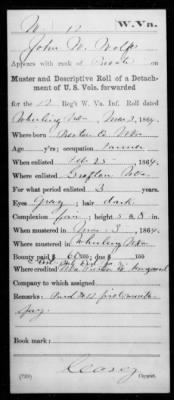 W. 12 W.Va.
John W. Wolf
Appears with rank of Private on
Muster and Descriptive Roll of a Detachment
of U. S. Vols. forwarded
for the 12 Reg't W. Va. Inf. Roll dated
Wheeling Va., Mar 3, 1864.
Where born Preston Co Va
Age y'rs; occupation Farmer
When enlisted Feb 25, 1864.
Where enlisted Grafton Va.
For what period enlisted 3 years.
Eyes Gray; hair dark.
Complexion fair; height 5 ft. 8 in.
When mustered in Mar 3, 1864.
Where mustered in Wheeling Va
Bounty paid $ 60 100; due $ 100
Where credited
Company to which assigned
Remarks: Paid $13 first month's
pay.
Book mark:
Casey
(339) Copyist.